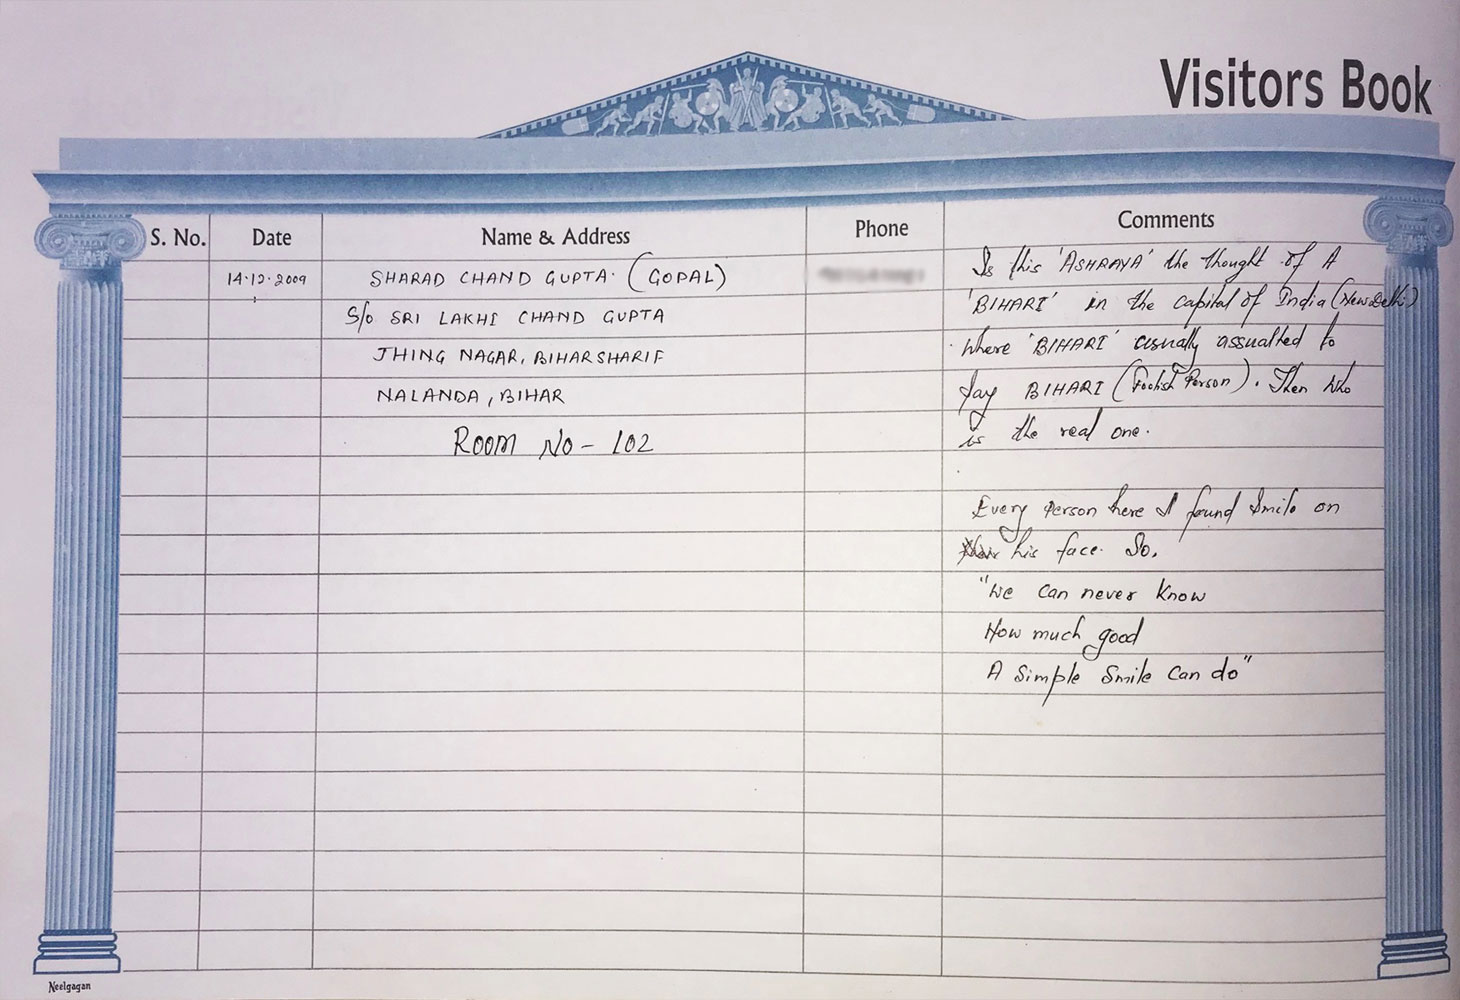 Visitors Book
S. No. Date Name & Address Phone Comments
14.12.2009 SHARAD CHAND GUPTA. (GOPAL)
S/o SRI LAKHI CHAND GUPTA
JHING NAGAR, BIHARSHARIF
NALANDA, BIHAR
ROOM NO - 102
Is this 'ASHRAYA' the thought of A
'BIHARI' in the capital of India (New Delhi)
where 'BIHARI' usually assualted to
say BIHARI (Foolish Person). Then who
is the real one.
Every person here I found smile on
his face. So,
"We can never know
How much good
A simple smile can do"
Neelgagan